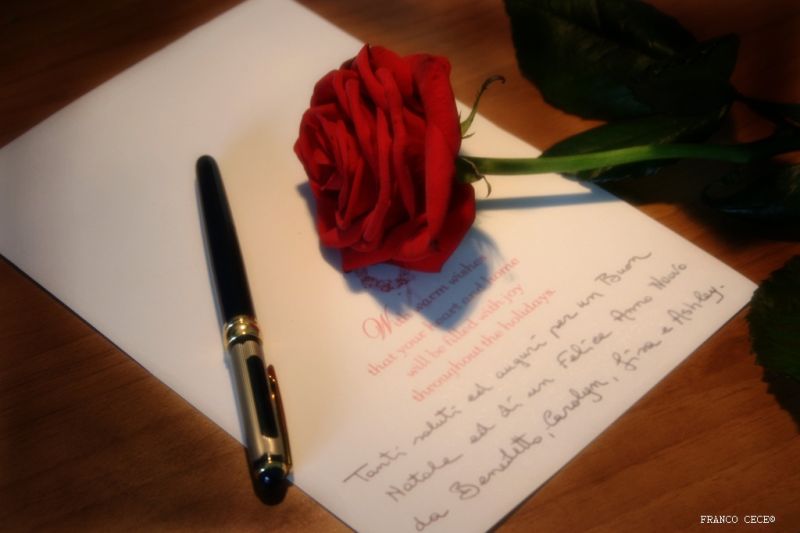 With warm wishes
that your heart and home
will be filled with joy
throughout the holidays.
Tanti saluti ed auguri per un Buon
Natale ed di un Felice Anno Nuovo
da Benedetto, Carolyn, Lisa e Ashley.
FRANCO CECE©